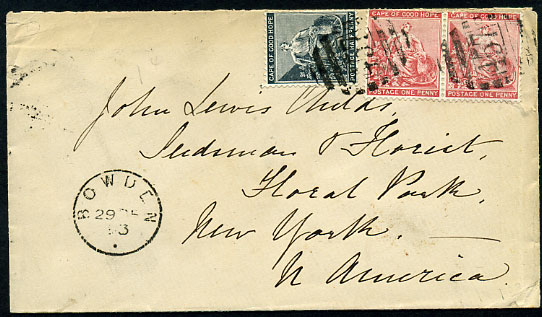 CAPE OF GOOD HOPE
POSTAGE HALF PENNY
CAPE OF GOOD HOPE
POSTAGE ONE PENNY
CAPE OF GOOD HOPE
POSTAGE ONE PENNY
John Lewis Childs,
Seedsman & Florist,
Floral Park,
New York.
N America.
BOWDEN
29 DE
93